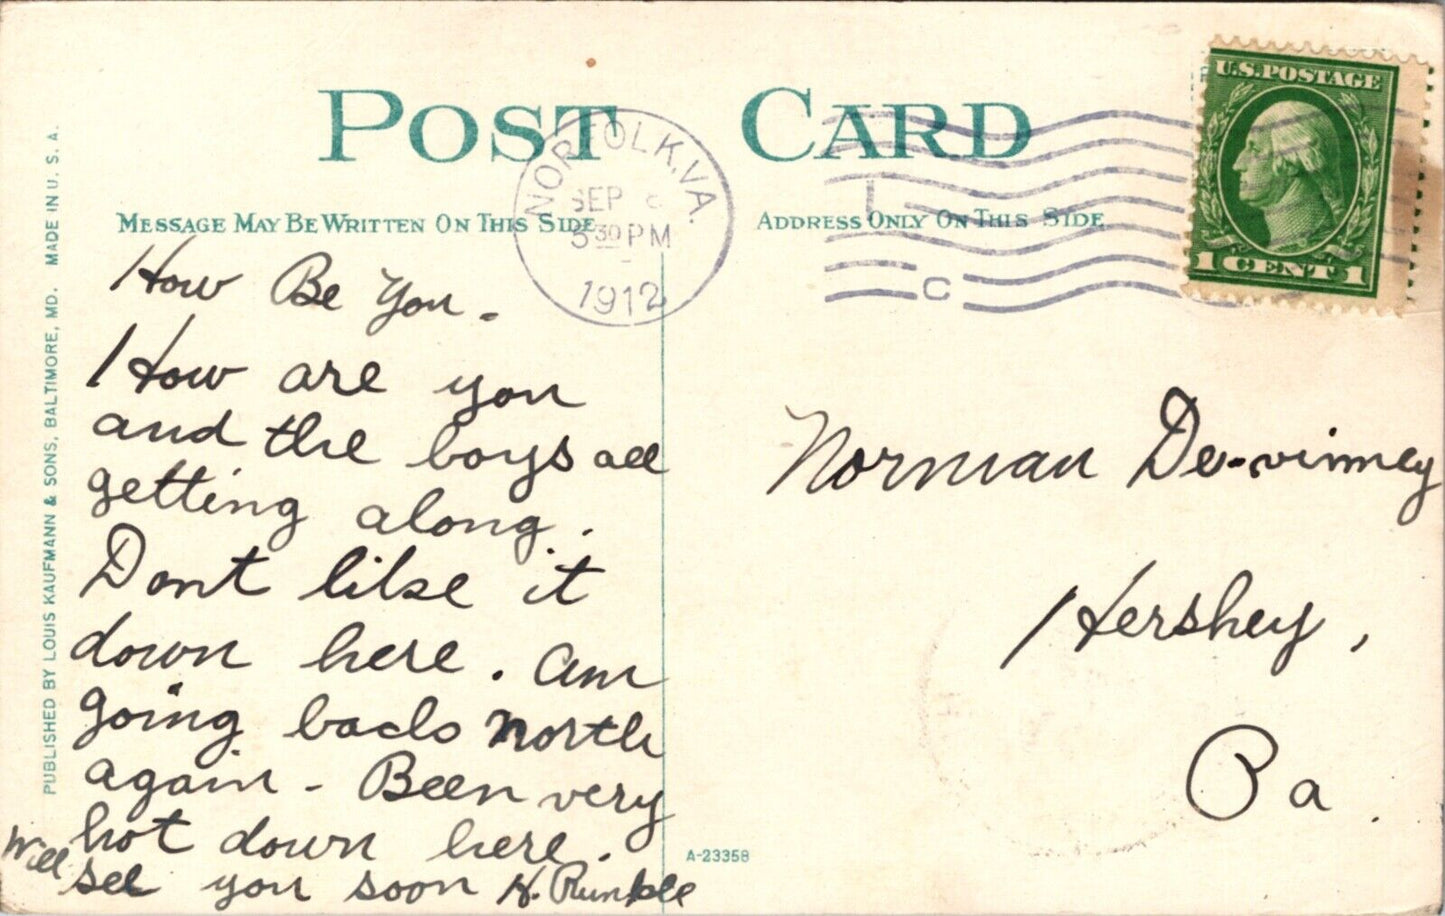 POST CARD
MESSAGE MAY BE WRITTEN ON THIS SIDE
ADDRESS ONLY ON THIS SIDE
PUBLISHED BY LOUIS KAUFMANN & SONS, BALTIMORE, MD. MADE IN U. S. A.
NORFOLK, VA.
SEP
30 PM
1912
C
U.S. POSTAGE
1 CENT 1
How Be You -
How are you
and the boys all
getting along.
Dont like it
down here. Am
going back north
again - Been very
hot down here.
Will see you soon H. Runkle
Norman De-vinney
Hershey,
Pa.
A-23358